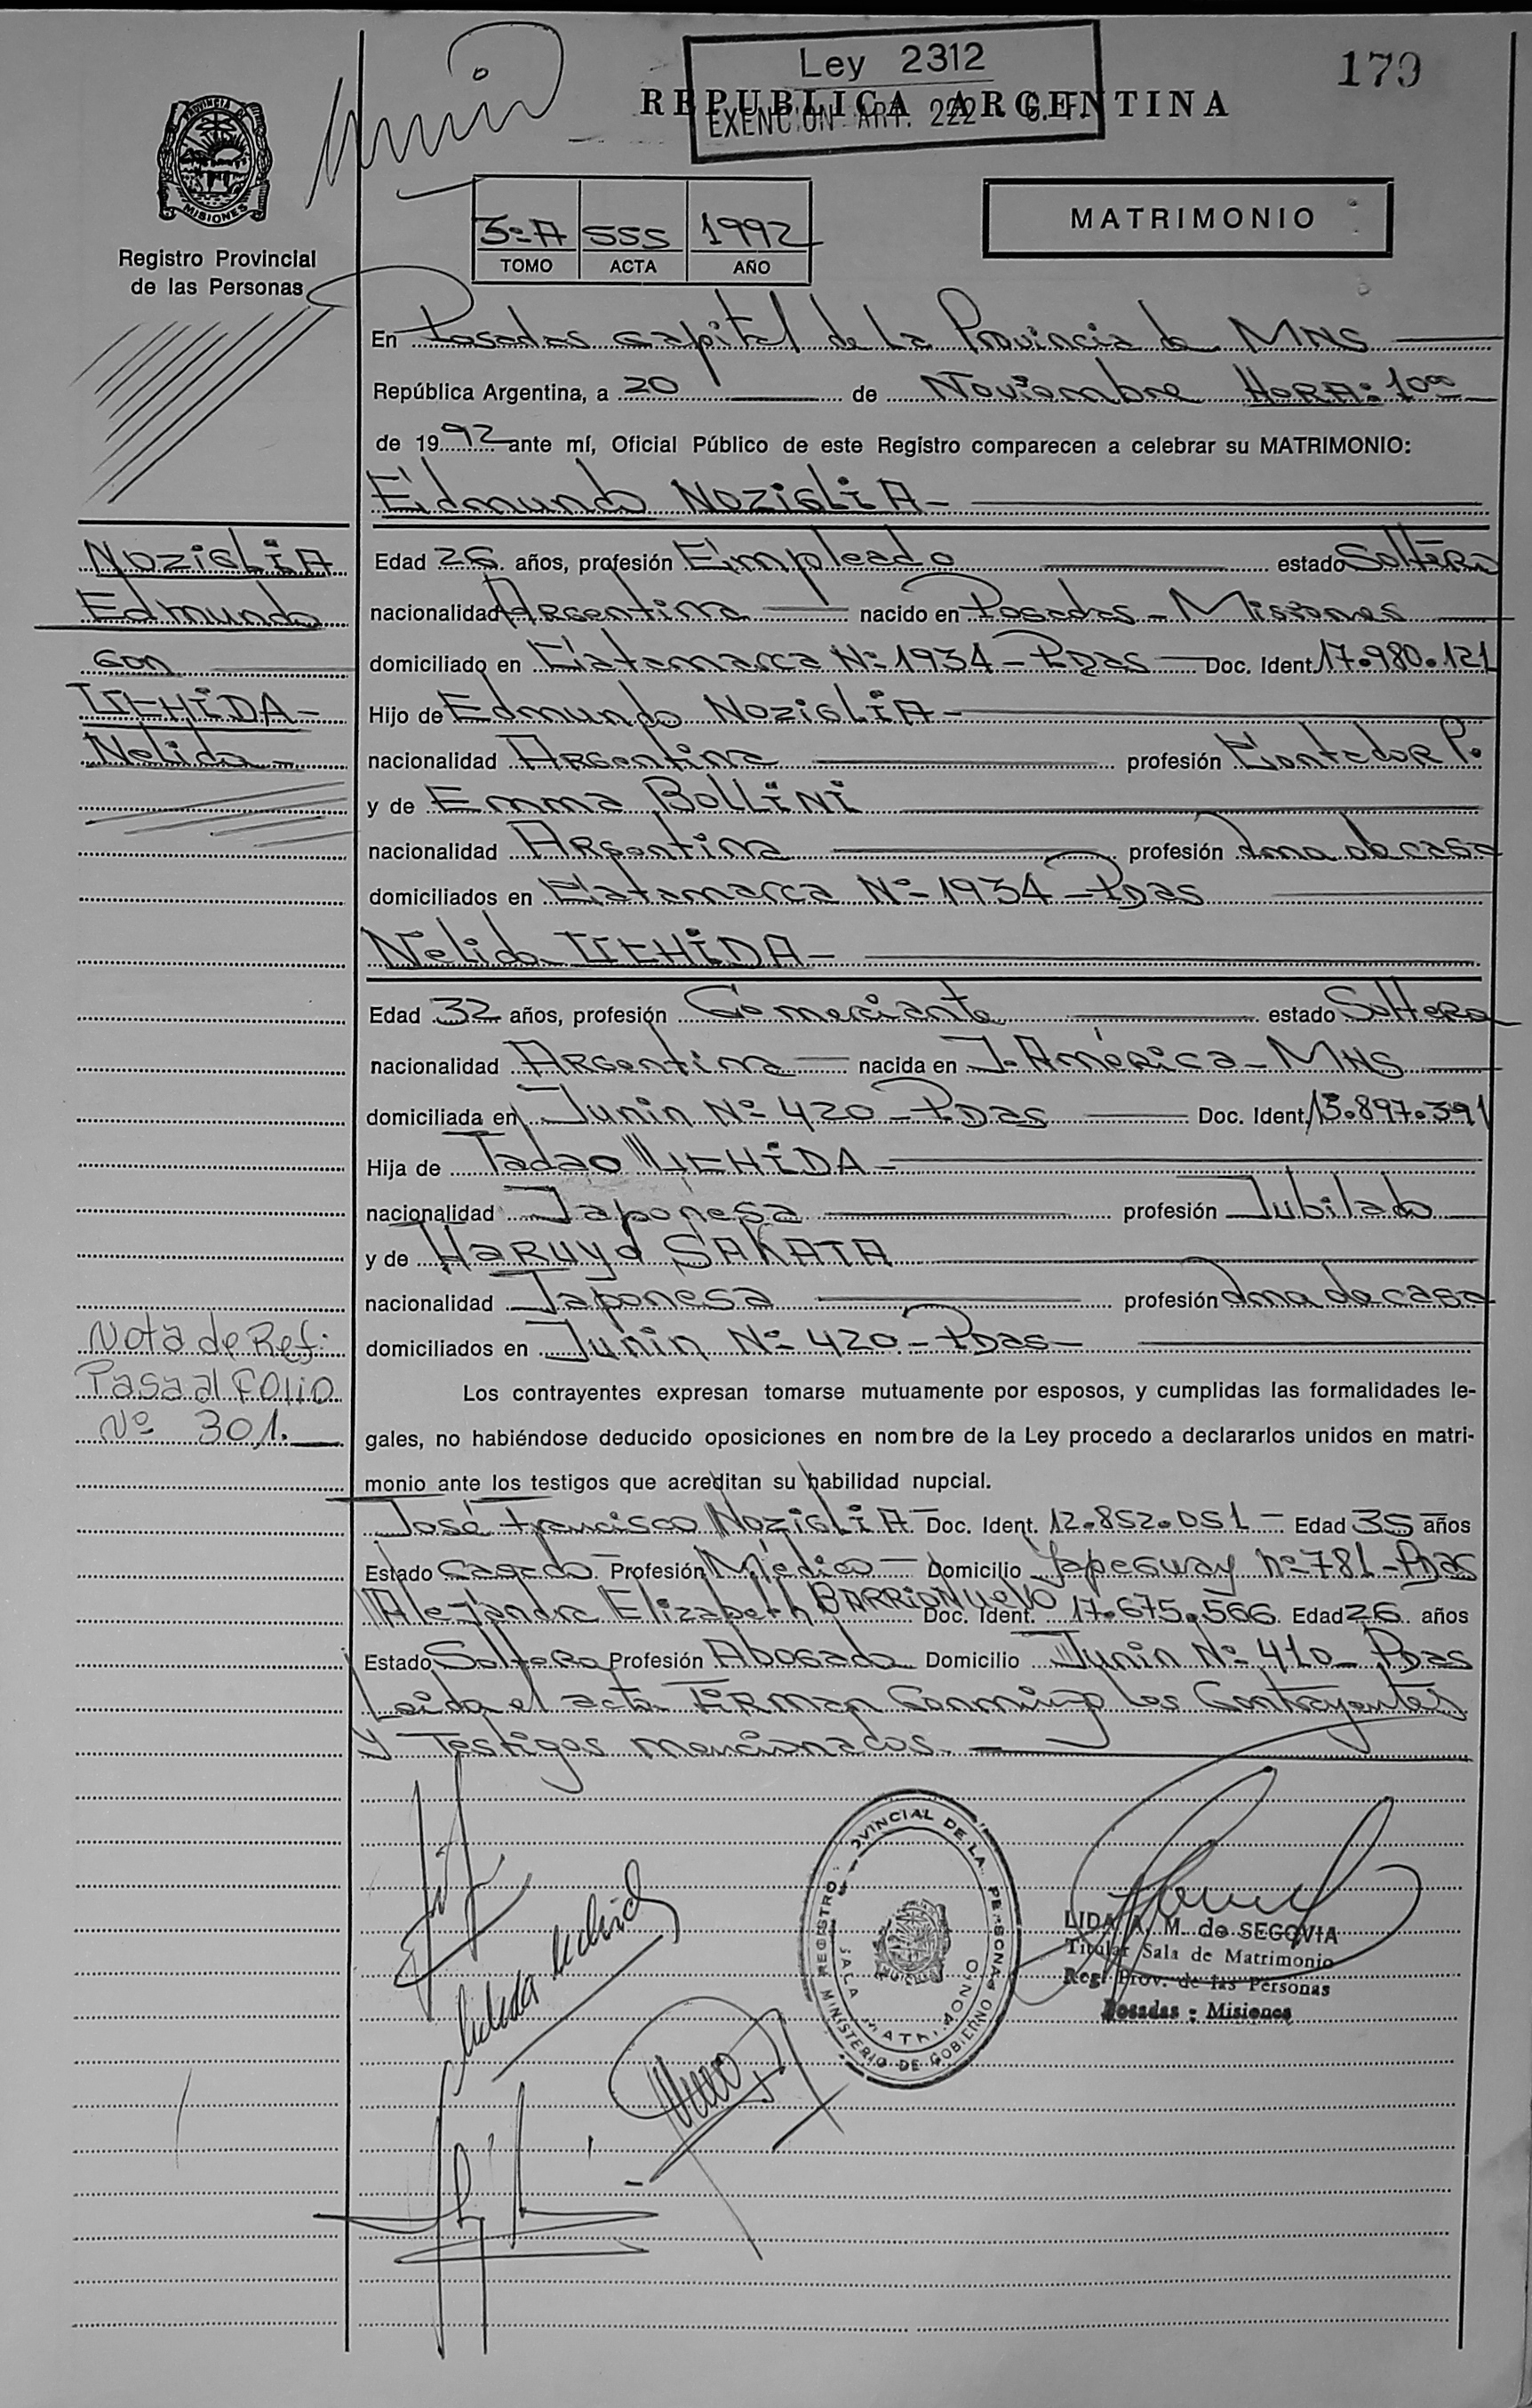 Ley 2312
EXENCION ART. 222
179
REPUBLICA ARGENTINA
PROVINCIA DE
MISIONES
Registro Provincial
de las Personas
3º A 555 1992
TOMO ACTA AÑO
MATRIMONIO
En Posadas Capital de La Provincia de MNS
República Argentina, a 20 de Noviembre HORA: 10ºº
de 1992 ante mí, Oficial Público de este Registro comparecen a celebrar su MATRIMONIO:
Edmundo NOZIGLIA-
NOZIGLIA
Edmundo
con
UCHIDA-
Nelida-
Edad 26 años, profesión Empleado estado Soltero
nacionalidad Argentina nacido en Posadas-Misiones
domiciliado en Catamarca Nº 1934-Pdas Doc. Ident. 17.980.121
Hijo de Edmundo NOZIGLIA-
nacionalidad Argentina profesión Contador P.
y de Emma BOLLINI
nacionalidad Argentina profesión Ama de casa
domiciliados en Catamarca Nº 1934-Pdas
Nelida UCHIDA-
Edad 32 años, profesión Comerciante estado Soltera
nacionalidad Argentina nacida en J. América-MNS
domiciliada en Junin Nº 420-Pdas Doc. Ident. 13.897.391
Hija de Tadao UCHIDA-
nacionalidad Japonesa profesión Jubilado
y de Haruyo SAKATA
nacionalidad Japonesa profesión Ama de casa
domiciliados en Junin Nº 420-Pdas-
Nota de Ref:
Pasa al Folio
Nº 301.
Los contrayentes expresan tomarse mutuamente por esposos, y cumplidas las formalidades le-
gales, no habiéndose deducido oposiciones en nombre de la Ley procedo a declararlos unidos en matri-
monio ante los testigos que acreditan su habilidad nupcial.
José Francisco NOZIGLIA Doc. Ident. 12.852.051- Edad 35 años
Estado Casado Profesión Médico Domicilio Yapeguay Nº 781-Pdas
Alejandra Elizabeth BARRIONUEVO Doc. Ident. 17.675.566 Edad 26 años
Estado Soltera Profesión Abogada Domicilio Junin Nº 410-Pdas
Leida el acta Firman Conmigo Los Contrayentes
y Testigos mencionados.
REGISTRO PROVINCIAL DE LAS PERSONAS
SALA MATRIMONIO
MINISTERIO DE GOBIERNO
LIDA A. M. de SEGOVIA
Titular Sala de Matrimonio
Reg. Prov. de las Personas
Posadas - Misiones